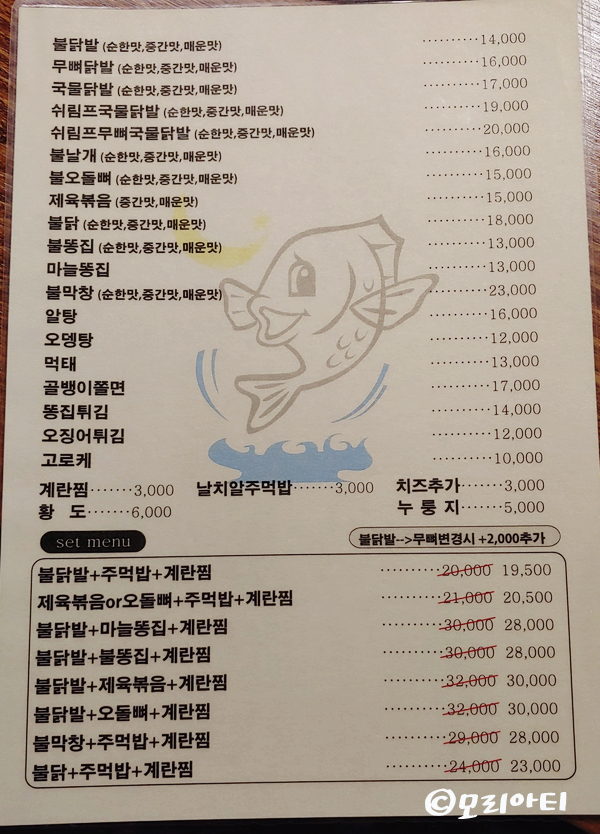 불닭발 (순한맛,중간맛,매운맛) ··········14,000
무뼈닭발 (순한맛,중간맛,매운맛) ··········16,000
국물닭발 (순한맛,중간맛,매운맛) ··········17,000
쉬림프국물닭발 (순한맛,중간맛,매운맛) ··········19,000
쉬림프무뼈국물닭발 (순한맛,중간맛,매운맛) ··········20,000
불날개 (순한맛,중간맛,매운맛) ··········16,000
불오돌뼈 (순한맛,중간맛,매운맛) ··········15,000
제육볶음 (중간맛,매운맛) ··········15,000
불닭 (순한맛,중간맛,매운맛) ··········18,000
불똥집 (순한맛,중간맛,매운맛) ··········13,000
마늘똥집 ··········13,000
불막창 (순한맛,중간맛,매운맛) ··········23,000
알탕 ··········16,000
오뎅탕 ··········12,000
먹태 ··········13,000
골뱅이쫄면 ··········17,000
똥집튀김 ··········14,000
오징어튀김 ··········12,000
고로케 ··········10,000
계란찜·······3,000 날치알주먹밥·······3,000 치즈추가·······3,000
황 도·······6,000 누 룽 지·······5,000
set menu 불닭발-->무뼈변경시 +2,000추가
불닭발+주먹밥+계란찜 ··········20,000 19,500
제육볶음or오돌뼈+주먹밥+계란찜 ··········21,000 20,500
불닭발+마늘똥집+계란찜 ··········30,000 28,000
불닭발+불똥집+계란찜 ··········30,000 28,000
불닭발+제육볶음+계란찜 ··········32,000 30,000
불닭발+오돌뼈+계란찜 ··········32,000 30,000
불막창+주먹밥+계란찜 ··········29,000 28,000
불닭+주먹밥+계란찜 ··········24,000 23,000
©모리아티